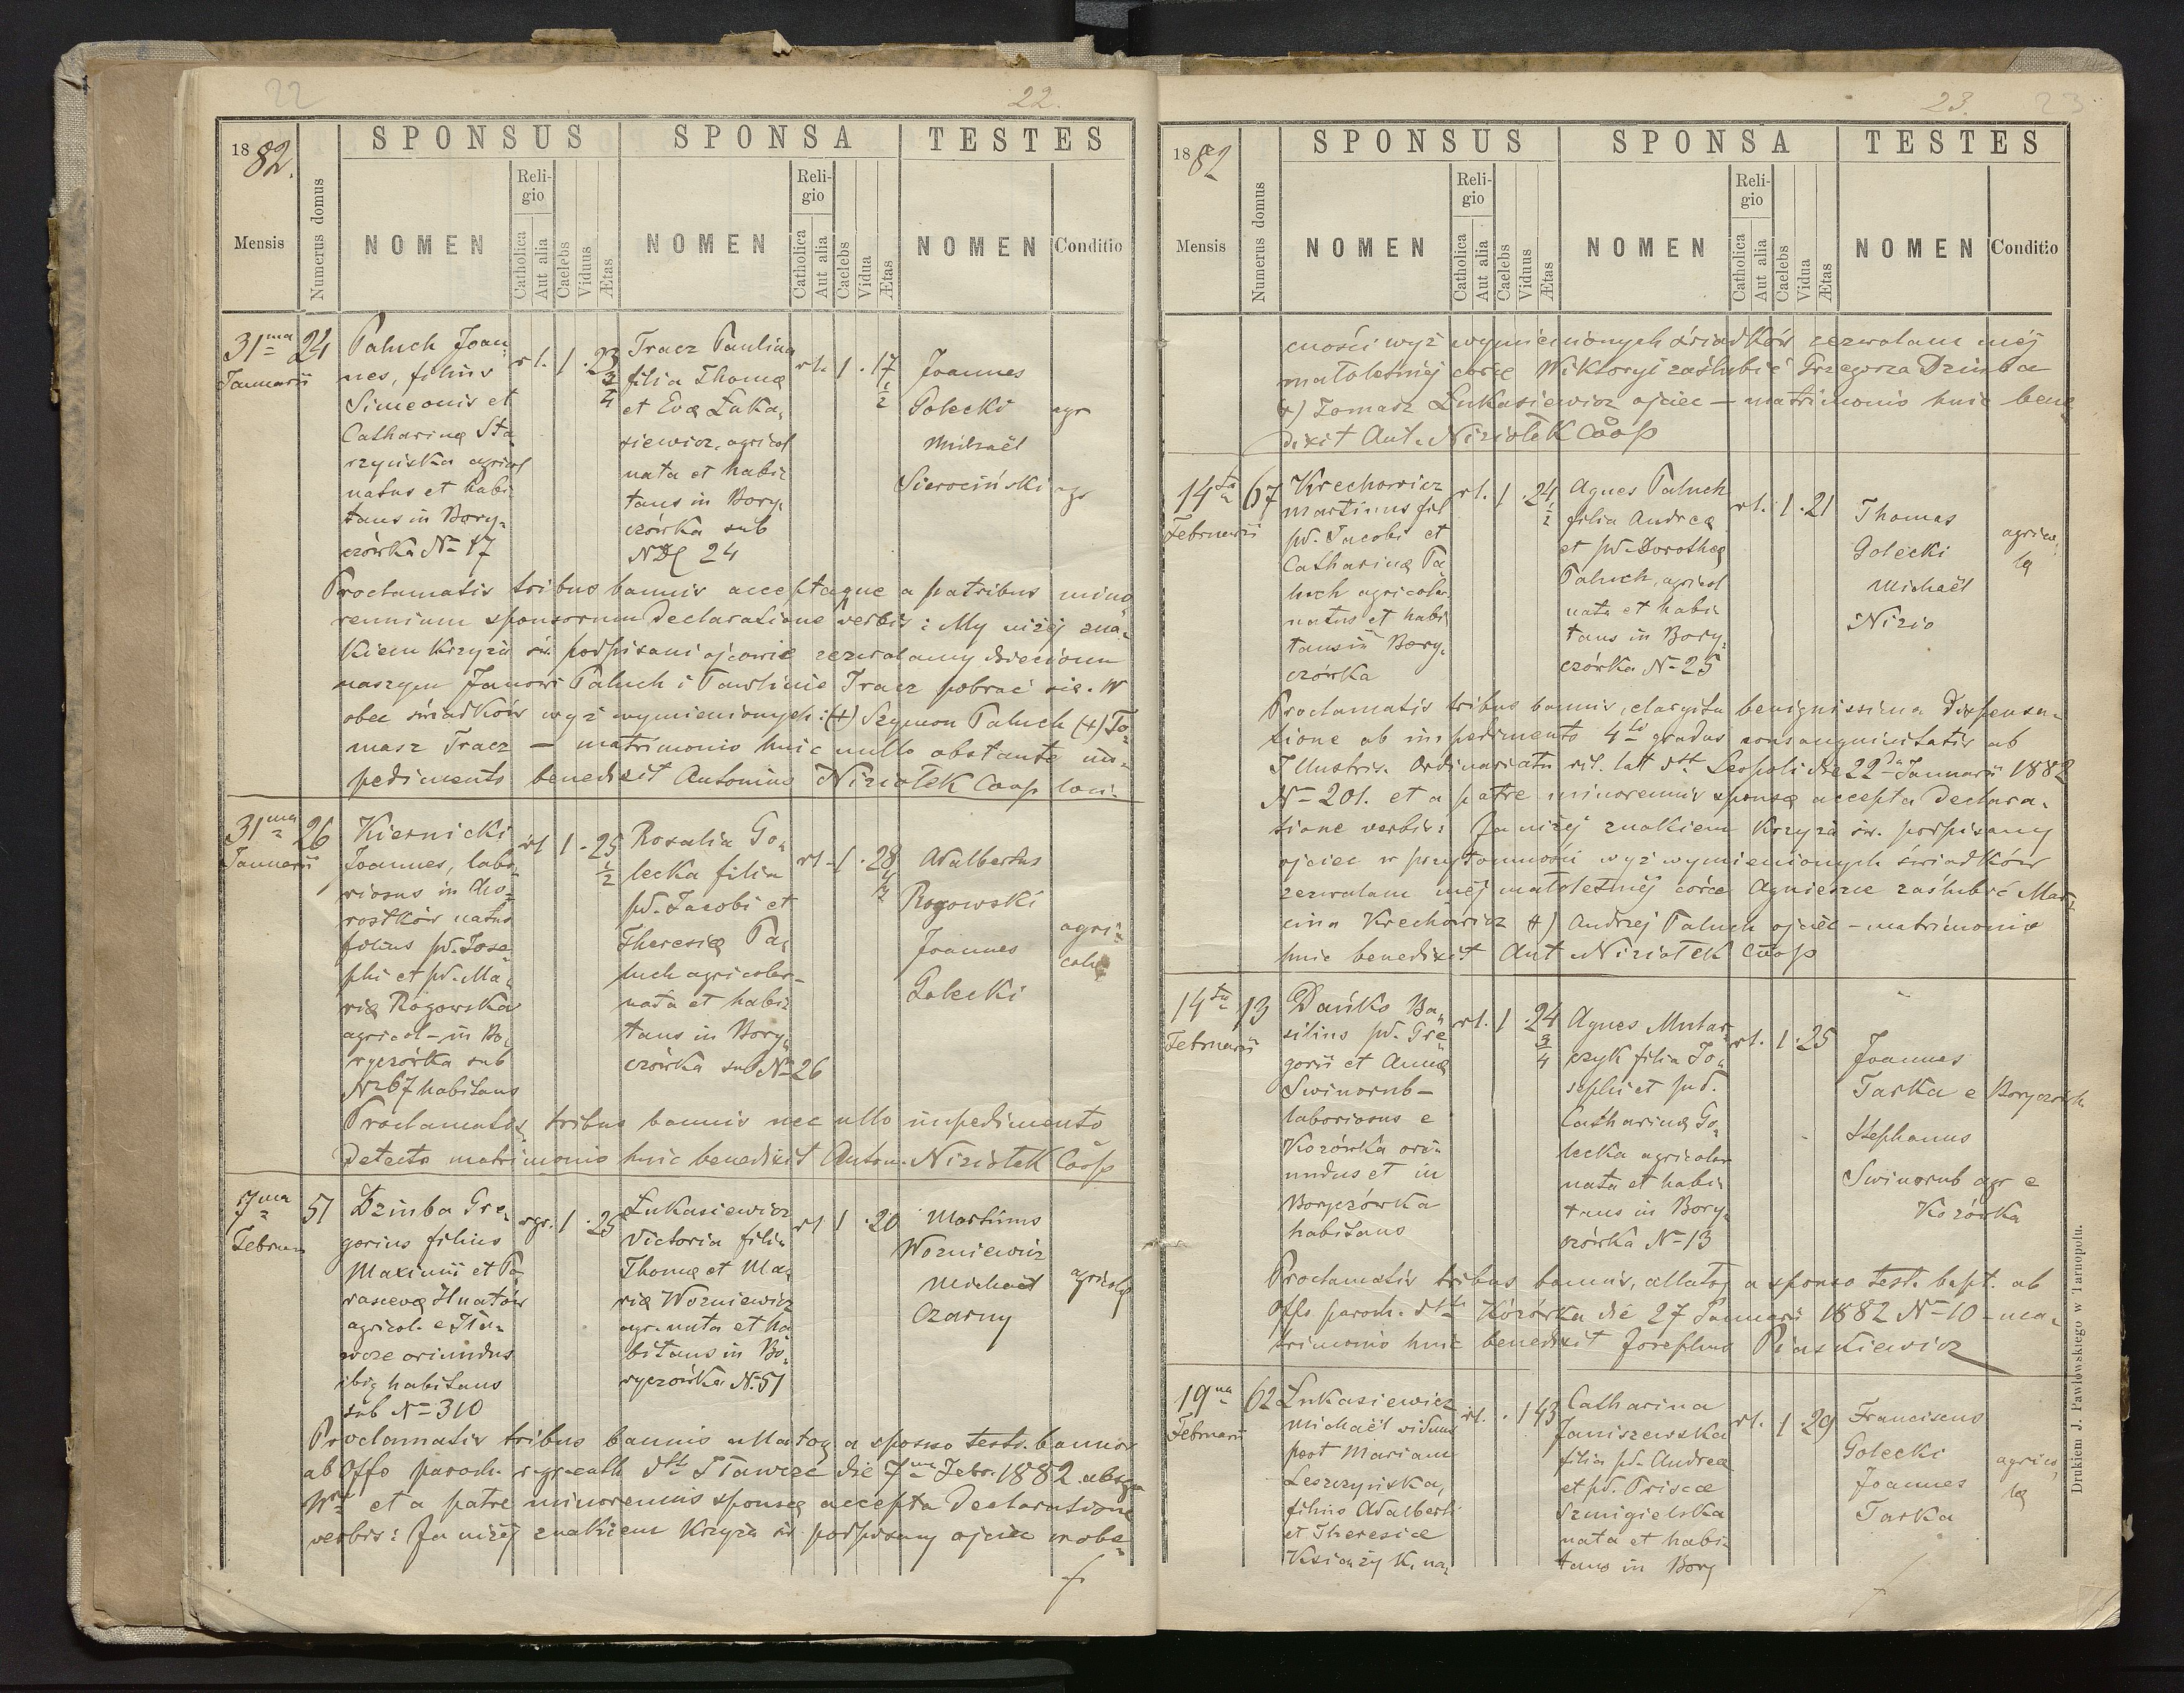 22
22.
1882.
SPONSUS SPONSA TESTES
Mensis
Numerus domus
NOMEN
Religio
Catholica
Aut alia
Caelebs
Viduus
Ætas
NOMEN
Religio
Catholica
Aut alia
Caelebs
Vidua
Ætas
NOMEN
Conditio
31ma
Januarii
24
Paluch Joan-
nes, filius
Simeonis et
Catharinę Sta-
rzyńska agricol
natus et habi-
tans in Bory-
czówka No 17
rl. 1 . 23 3/4
Tracz Paulina
filia Thomę
et Evę Łuka-
siewicz, agricol
nata et habi-
tans in Bory-
czówka sub
ND 24
rl. 1 . 17 1/2
Joannes
Gołecki agr
Michaël
Sierociński agr
Proclamatis tribus bannis acceptaque a patribus mino-
rennium sponsorum declaratione verbis: My niżej zna-
kiem Krzyża św. podpisani ojcowie zezwalamy dzieciom
naszym Janowi Paluch i Paulinie Tracz pobrać się. W
obec świadków wyż wymienionych: (+) Szymon Paluch (+) To-
masz Tracz — matrimonio huic nullo obstante im-
pedimento benedixit Antonius Niziołek Coop loci.
31ma
Januarii
26
Kiernicki
Joannes, labo-
riosus in Cho-
rostków natus
filius pd. Jose-
phi et pd. Ma-
rię Rogowska
agricol - in Bo-
ryczówka sub
Nr 67 habitans
rl 1 . 25 1/2
Rosalia Go-
łecka filia
pd. Jacobi et
Theresię Pa-
luch agricolar-
nata et habi-
tans in Bory-
czówka sub No 26
rl. 1 . 28
Adalbertus
Rogowski
Joannes
Gołecki
agri-
colę
Proclamatis tribus bannis nec ullo impedimento
detecto matrimonio huic benedixit Anton. Niziołek Coop
7ma
Februar
51
Dziuba Gre-
gorius filius
Maximi et Pa-
rascevę Hnatów
agricol. e Sta-
wcze oriundus
ibiq habitans
sub No 310
rgr. 1 . 25
Łukasiewicz
Victoria filia
Thomę et Ma-
rię Wozniewicz
agr. nata et ha-
bitans in Bo-
ryczówka N. 51
rl 1 . 20
Martinus
Wozniewicz
Michaël
Czarny
agricolę
Proclamatis tribus bannis allatoq a sponso testi. bannor
ab Offo paroch. r. gr. cath dtt Stawcze die 7ma Febr. 1882 absq
Nro et a patre minorennis sponsę accepta declaratione
verbis: Ja niżej znakiem Krzyża św. podpisany ojciec w obe-
23.
23
1882
SPONSUS SPONSA TESTES
Mensis
Numerus domus
NOMEN
Religio
Catholica
Aut alia
Caelebs
Viduus
Ætas
NOMEN
Religio
Catholica
Aut alia
Caelebs
Vidua
Ætas
NOMEN
Conditio
cności wyż wymienionych świadków zezwalam mej
małoletniej córce Wiktoryi zaślubić Grzegorza Dziuba
(+) Tomasz Łukasiewicz ojciec — matrimonio huic bene-
dixit Ant. Niziołek Coop
14ta
Februarii
67
Krechowicz
Martinus fil
pd. Jacobi et
Catharinę Pa-
luch agricolar
natus et habi-
tans in Bory-
czówka
rl. 1 . 24 1/2
Agnes Paluch
filia Andreę
et pd. Dorotheę
Paluch, agricol
nata et habi-
tans in Bory-
czówka No 25
rl. 1 . 21
Thomas
Gołecki
Michaël
Nizio
agrico-
lę
Proclamatis tribus bannis, elargita benignissima dispensa-
tione ab impedimento 4ti gradus consanguinitatis ab
Illustris. Ordinariatu rit. lat dtt Leopoli die 22da Januarii 1882
No 201. et a patre minorennis sponsę accepta declara-
tione verbis: Ja niżej znakiem Krzyża św. podpisany
ojciec w przytomności wyż wymienionych świadków
zezwalam mej małoletniej córce Agnieszce zaślubić Mar-
cina Krechowicz (+) Andrzej Paluch ojciec - matrimonio
huic benedixit Ant Niziołek Coop
14ta
Februarii
13
Dańko Ba-
silius pd. Gre-
gorii et Annę
Swinorub -
laboriosus e
Kozówka ori-
undus et in
Boryczówka
habitans
rl. 1 . 24 3/4
Agnes Mular-
czyk filia Jo-
sephi et pd.
Catharinę Go-
łecka agricolar
nata et habi-
tans in Bory-
czówka No 13
rl. 1 . 25
Joannes
Taśka e Boryczówk
Stephanus
Swinorub agr e
Kozówka
Proclamatis tribus bannis, allatoq a sponso test. bapt. ab
Offo paroch. dtt Kozówka die 27 Januarii 1882 No 10 - ma-
trimonio huic benedixit Josephus Piaskiewicz
19na
Februarii
62
Łukasiewicz
Michaël viduus
post Mariam
Leszczyńska,
filius Adalberti
et Theresiae
Książyk, na-
rl. . 1 43
Catharina
Janiszewska
filia pd. Andreę
et pd. Priscae
Szmigielska
nata et habi-
tans in Bory
rl. 1 . 29
Franciscus
Gołecki
Joannes
Taśka
agrico-
lę
Drukiem J. Pawłowskiego w Tarnopolu.